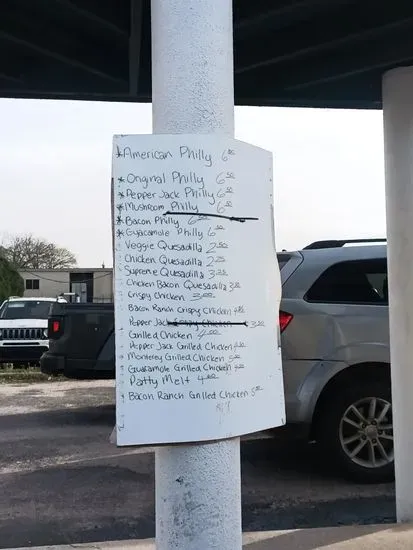 *American Philly 6.00
*Original Philly 6.50
*Pepper Jack Philly 6.50
*Mushroom Philly 6.50
*Bacon Philly
*Guacamole Philly
Veggie Quesadilla 2.50
Chicken Quesadilla
Supreme Quesadilla
Chicken Bacon Quesadilla
Crispy Chicken 3.00
Bacon Ranch Crispy Chicken
Pepper Jack Crispy Chicken
Grilled Chicken 4.00
Pepper Jack Grilled Chicken
Monterey Grilled Chicken
Guacamole Grilled Chicken
Patty Melt
Bacon Ranch Grilled Chicken